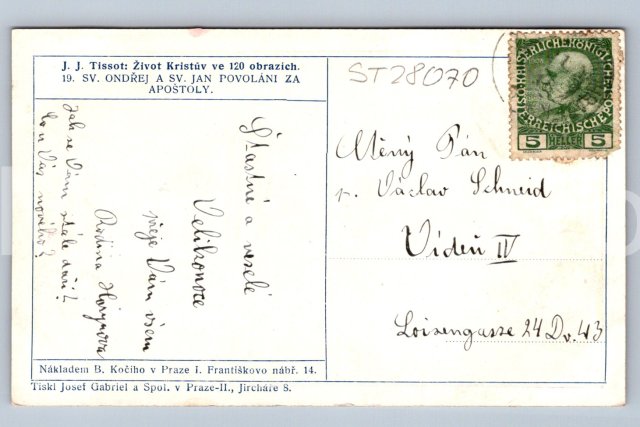 J. J. Tissot: Život Kristův ve 120 obrazích.
19. SV. ONDŘEJ A SV. JAN POVOLÁNI ZA
APOŠTOLY.
ST28070
Šťastné a veselé
Velikonoce
přeje Vám všem
Rodina
Jak se Vám stále daří?
co u Vás nového?
Pán
p. Václav Schneid
Vídeň IV
Loisengasse 24 D. 43
5 HELLER 5
Nákladem B. Kočího v Praze I. Františkovo nábř. 14.
Tiskl Josef Gabriel a Spol. v Praze-II., Jircháře 8.